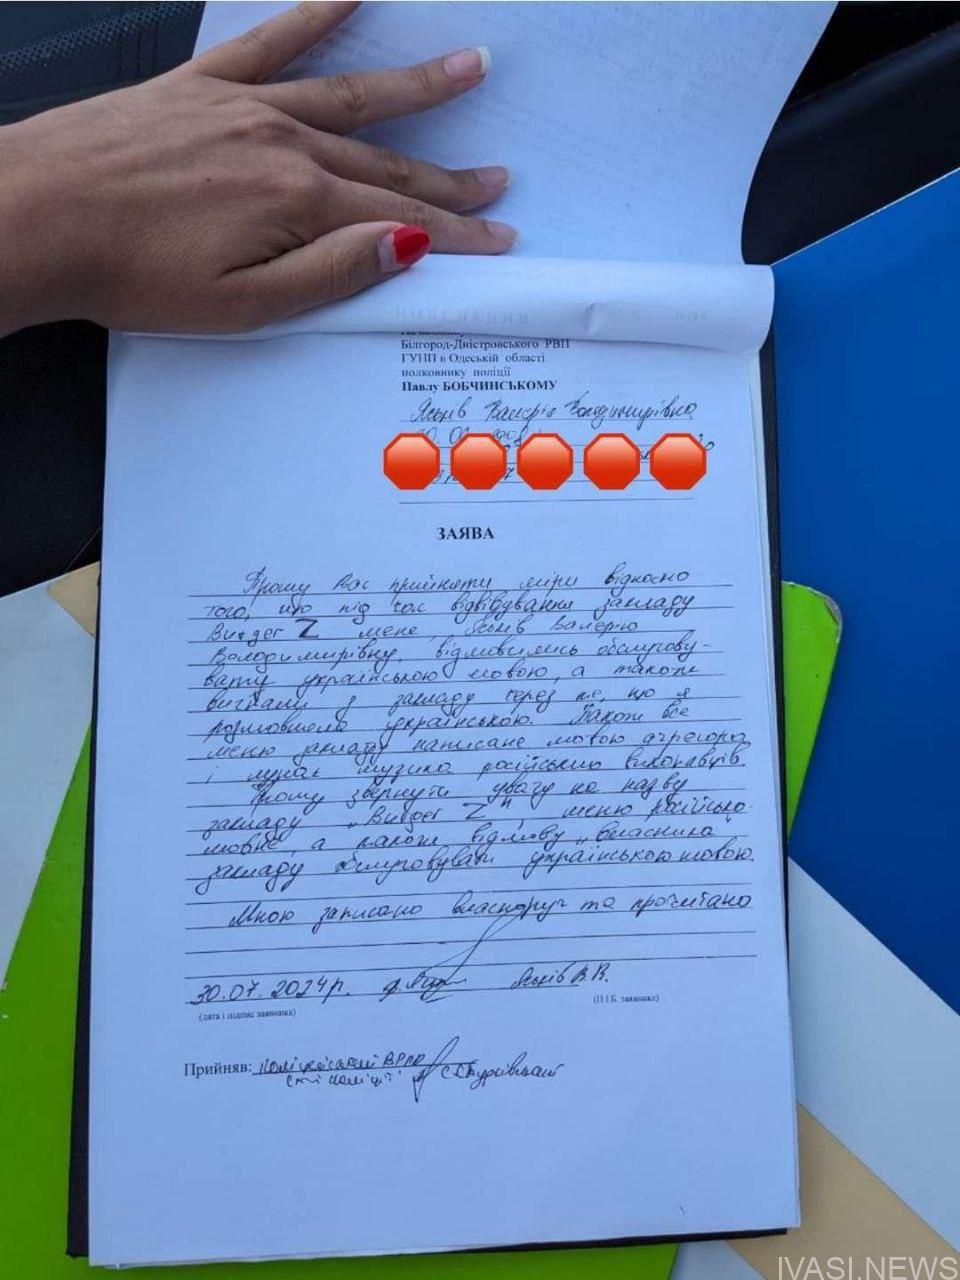 ПОЯСНЕННЯ
Білгород-Дністровського РВП
ГУНП в Одеській області
полковнику поліції
Павлу БОБЧИНСЬКОМУ
Яськів Валерія Володимирівна
ЗАЯВА
Прошу Вас прийняти міри відносно
того, що під час відвідування закладу
Z мене, Яськів Валерію
Володимирівну, відмовились обслугову-
вати українською мовою, а також
вигнали з закладу через те, що я
розмовляла українською. Також все
меню закладу написане мовою агресора
і лунає музика російських виконавців.
Прошу звернути увагу на назву
закладу Z", меню російсько-
мовне, а також відмову „власника"
закладу обслуговувати українською мовою.
Мною записано власноруч та прочитано
30.07.2024р. Яськів В.В.
(дата і підпис заявника) (П.І.Б. заявника)
Прийняв: поліцейський
IVASI.NEWS